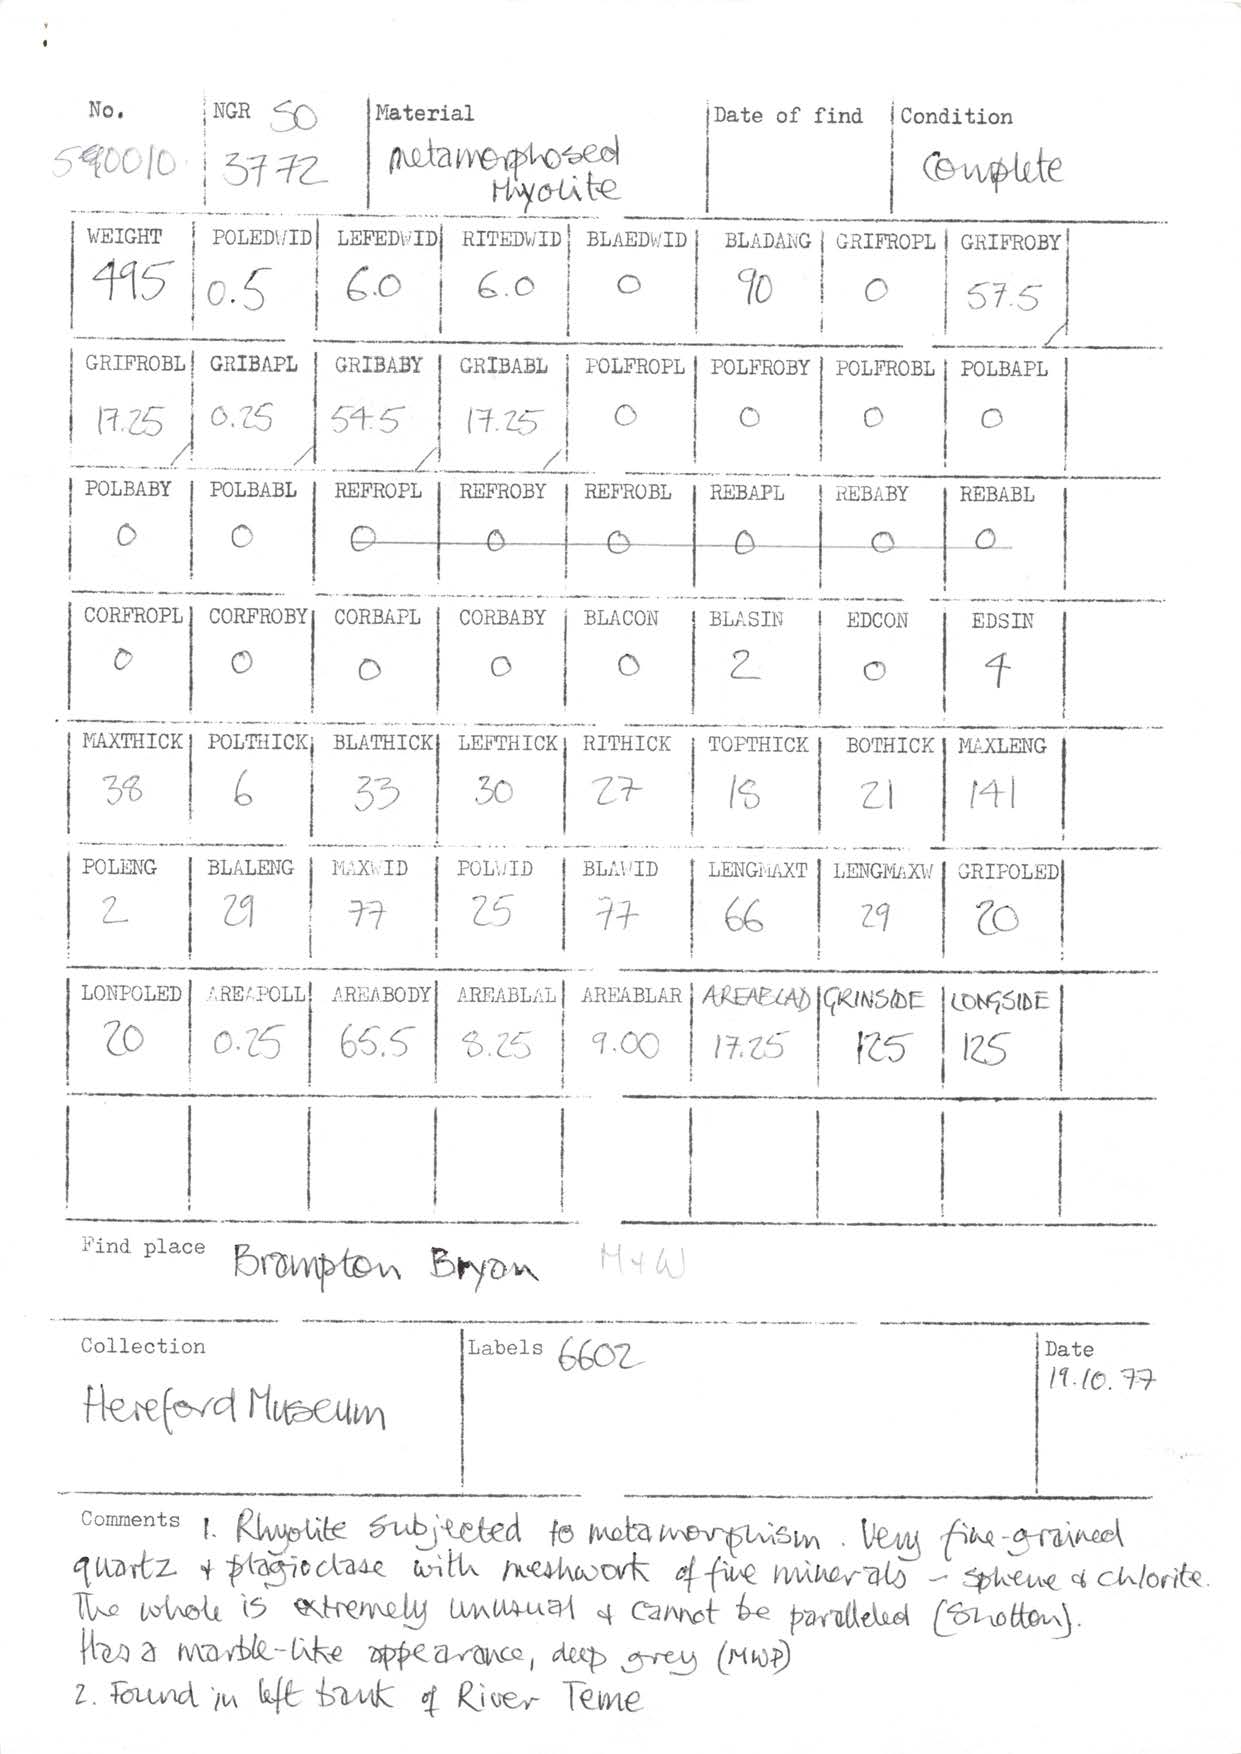 No. NGR SO Material Date of find Condition
590010 3772 metamorphosed Complete
rhyolite
WEIGHT POLEDWID LEFEDWID RITEDWID BLAEDWID BLADANG GRIFROPL GRIFROBY
495 0.5 6.0 6.0 0 90 0 57.5
GRIFROBL GRIBAPL GRIBABY GRIBABL POLFROPL POLFROBY POLFROBL POLBAPL
17.25 0.25 54.5 17.25 0 0 0 0
POLBABY POLBABL REFROPL REFROBY REFROBL REBAPL REBABY REBABL
0 0 0 0 0 0 0 0
CORFROPL CORFROBY CORBAPL CORBABY BLACON BLASIN EDCON EDSIN
0 0 0 0 0 2 0 4
MAXTHICK POLTHICK BLATHICK LEFTHICK RITHICK TOPTHICK BOTHICK MAXLENG
38 6 33 30 27 18 21 141
POLENG BLALENG MAXWID POLWID BLAWID LENGMAXT LENGMAXW GRIPOLED
2 29 77 25 77 66 29 20
LONPOLED AREAPOLL AREABODY AREABLAL AREABLAR AREABLAD GRINSIDE LONGSIDE
20 0.25 65.5 8.25 9.00 17.25 125 125
Find place Brampton Bryan M+W
Collection Labels 6602 Date
Hereford Museum 19.10.77
Comments 1. Rhyolite subjected to metamorphism. Very fine-grained
quartz & plagioclase with meshwork of fine minerals – sphene & chlorite.
The whole is extremely unusual & cannot be paralleled (Shotton).
Has a marble-like appearance, deep grey (MWP)
2. Found in left bank of River Teme